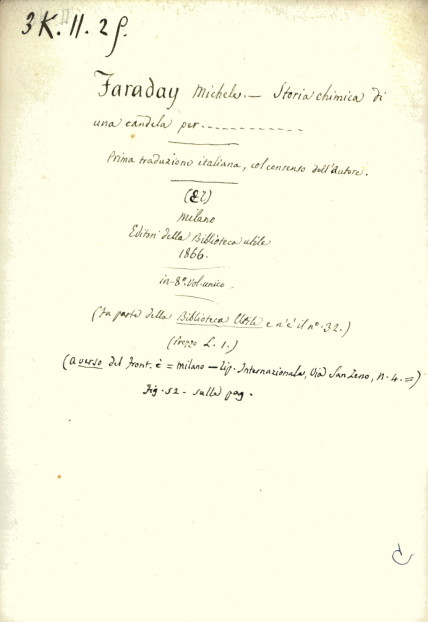 3K. 11. 28.
Faraday Michele. — Storia chimica di
una candela per - - - - - - - - - - -
Prima traduzione italiana, col consenso dell'Autore.
Milano
Editori della Biblioteca utile
1866.
in-8°. Vol. unico.
(Fa parte della Biblioteca Utile e n'è il n°. 32.)
(Prezzo L. 1.)
(a verso del Front. è = Milano — Tip. Internazionale, Via San Zeno, N. 4. =)
Fig. 52 - sulla pag.